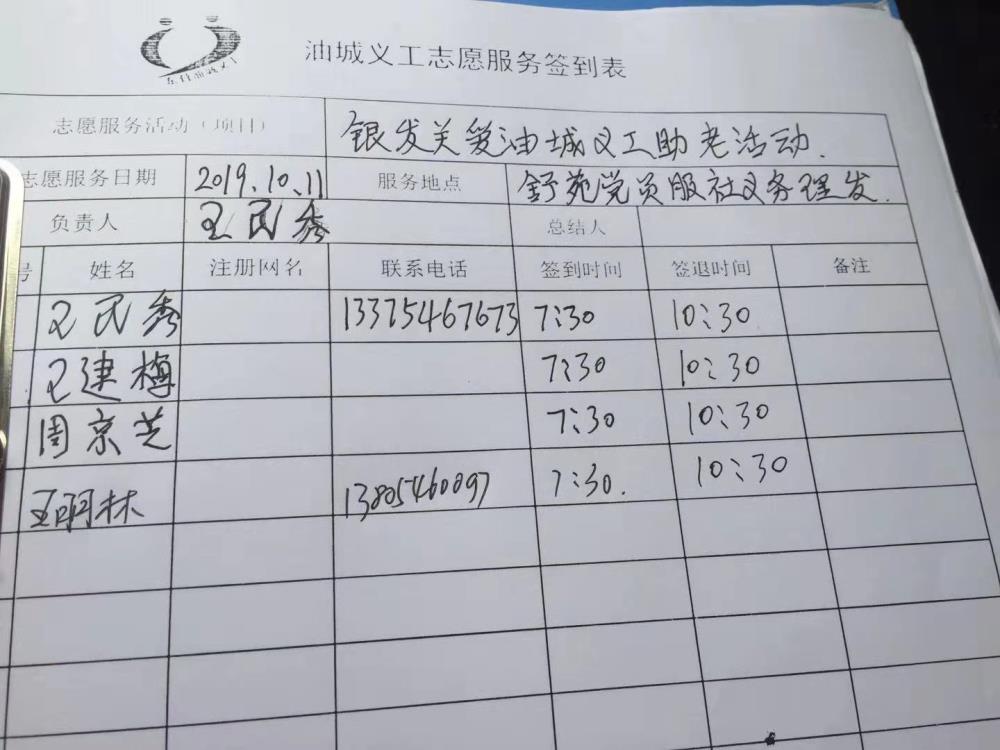 油城义工志愿服务签到表
志愿服务活动（项目） 银发关爱油城义工助老活动.
志愿服务日期 2019.10.11 服务地点 舒苑党员服社义务理发.
负责人 王民秀 总结人
号 姓名 注册网名 联系电话 签到时间 签退时间 备注
王民秀 13375467673 7:30 10:30
王建梅 7:30 10:30
周京芝 7:30 10:30
王明林 13805460097 7:30. 10:30